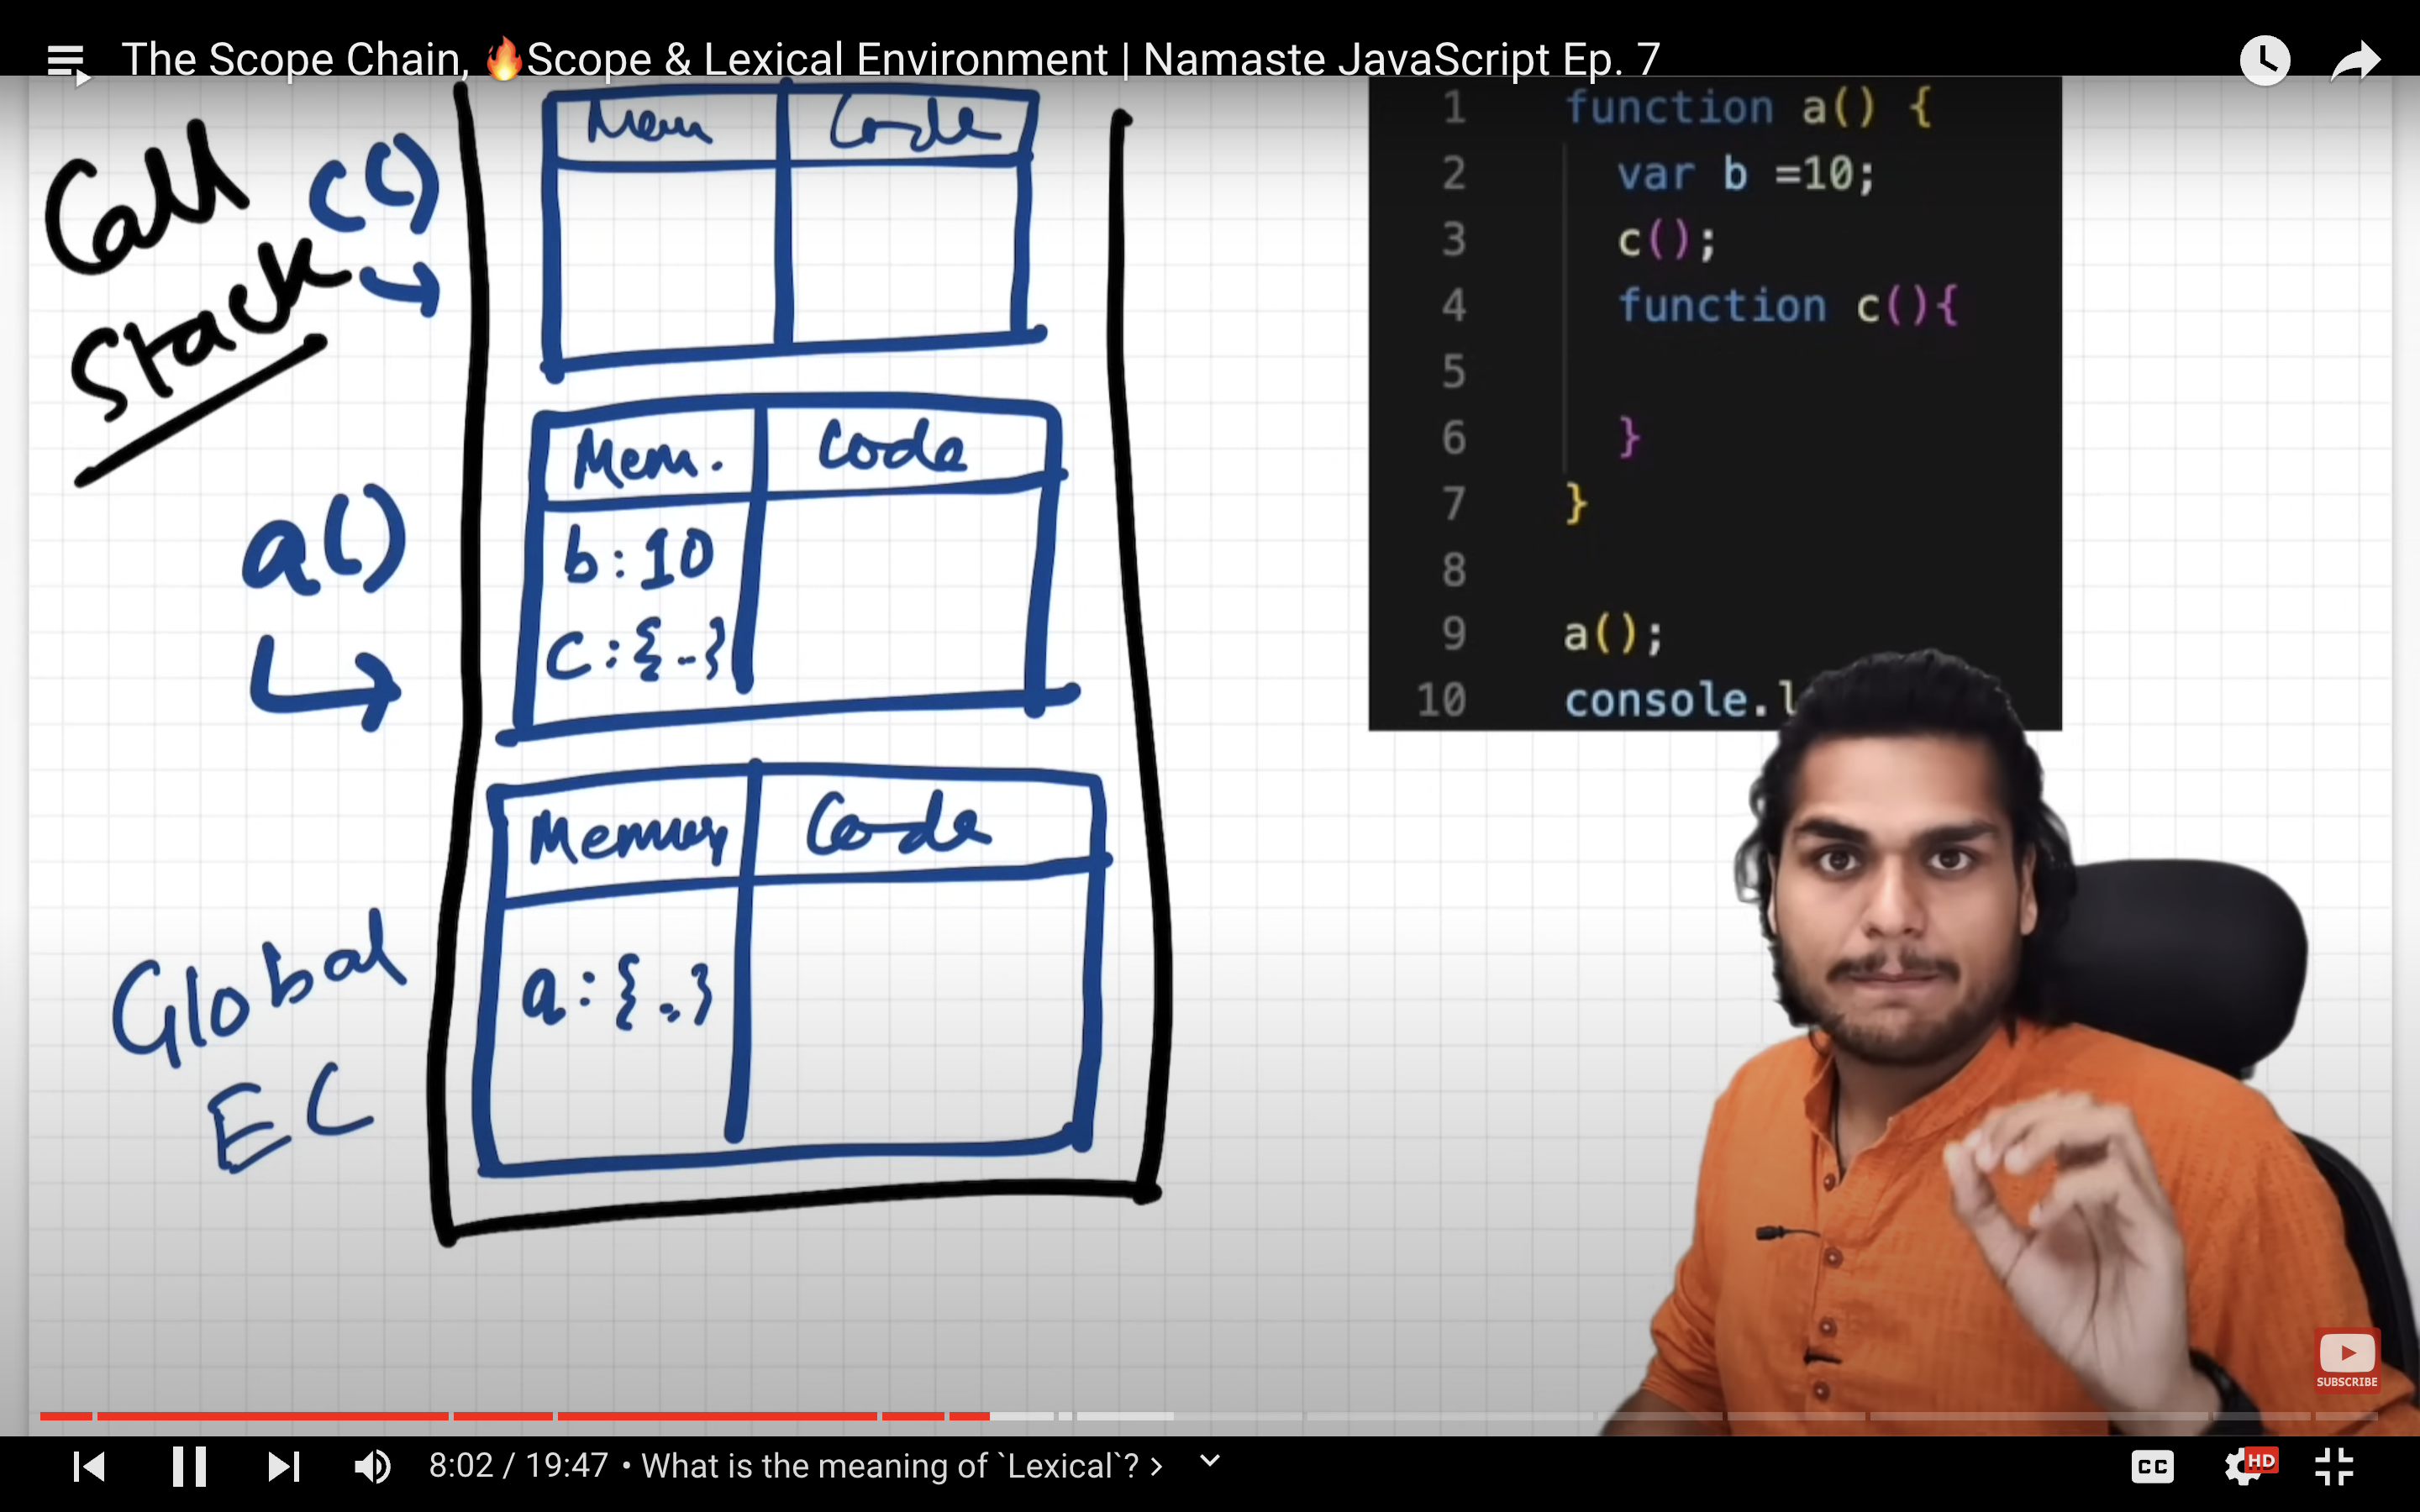 The Scope Chain, 🔥Scope & Lexical Environment | Namaste JavaScript Ep. 7
Call
Stack
c()
Mem Code
a()
Mem. Code
b : 10
c : {..}
Global
EC
Memory Code
a : {..}
1 function a() {
2 var b =10;
3 c();
4 function c(){
5
6 }
7 }
8
9 a();
10 console.l
SUBSCRIBE
8:02 / 19:47 • What is the meaning of `Lexical`? ›
CC
HD